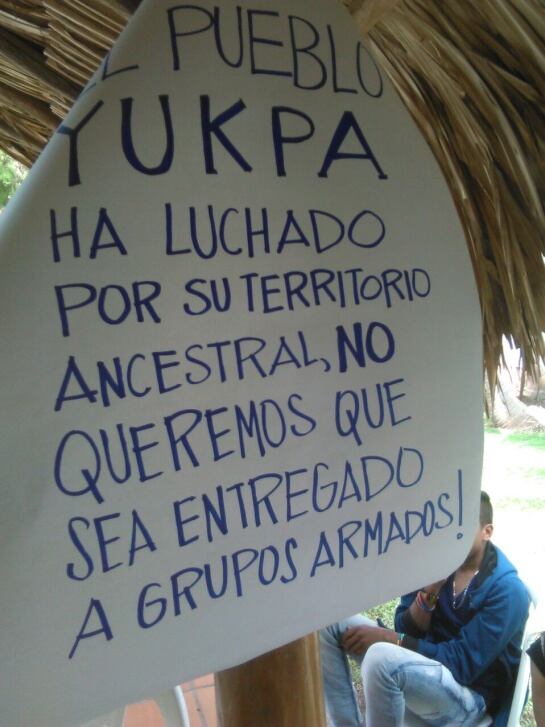 EL PUEBLO
YUKPA
HA LUCHADO
POR SU TERRITORIO
ANCESTRAL, NO
QUEREMOS QUE
SEA ENTREGADO
A GRUPOS ARMADOS!